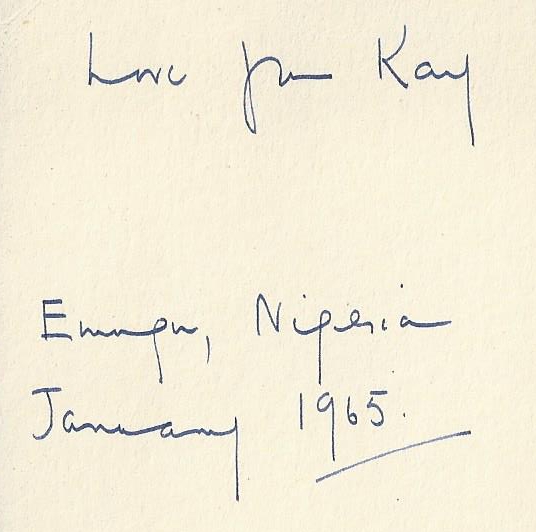 Love from Kay
Enugu, Nigeria
January 1965.